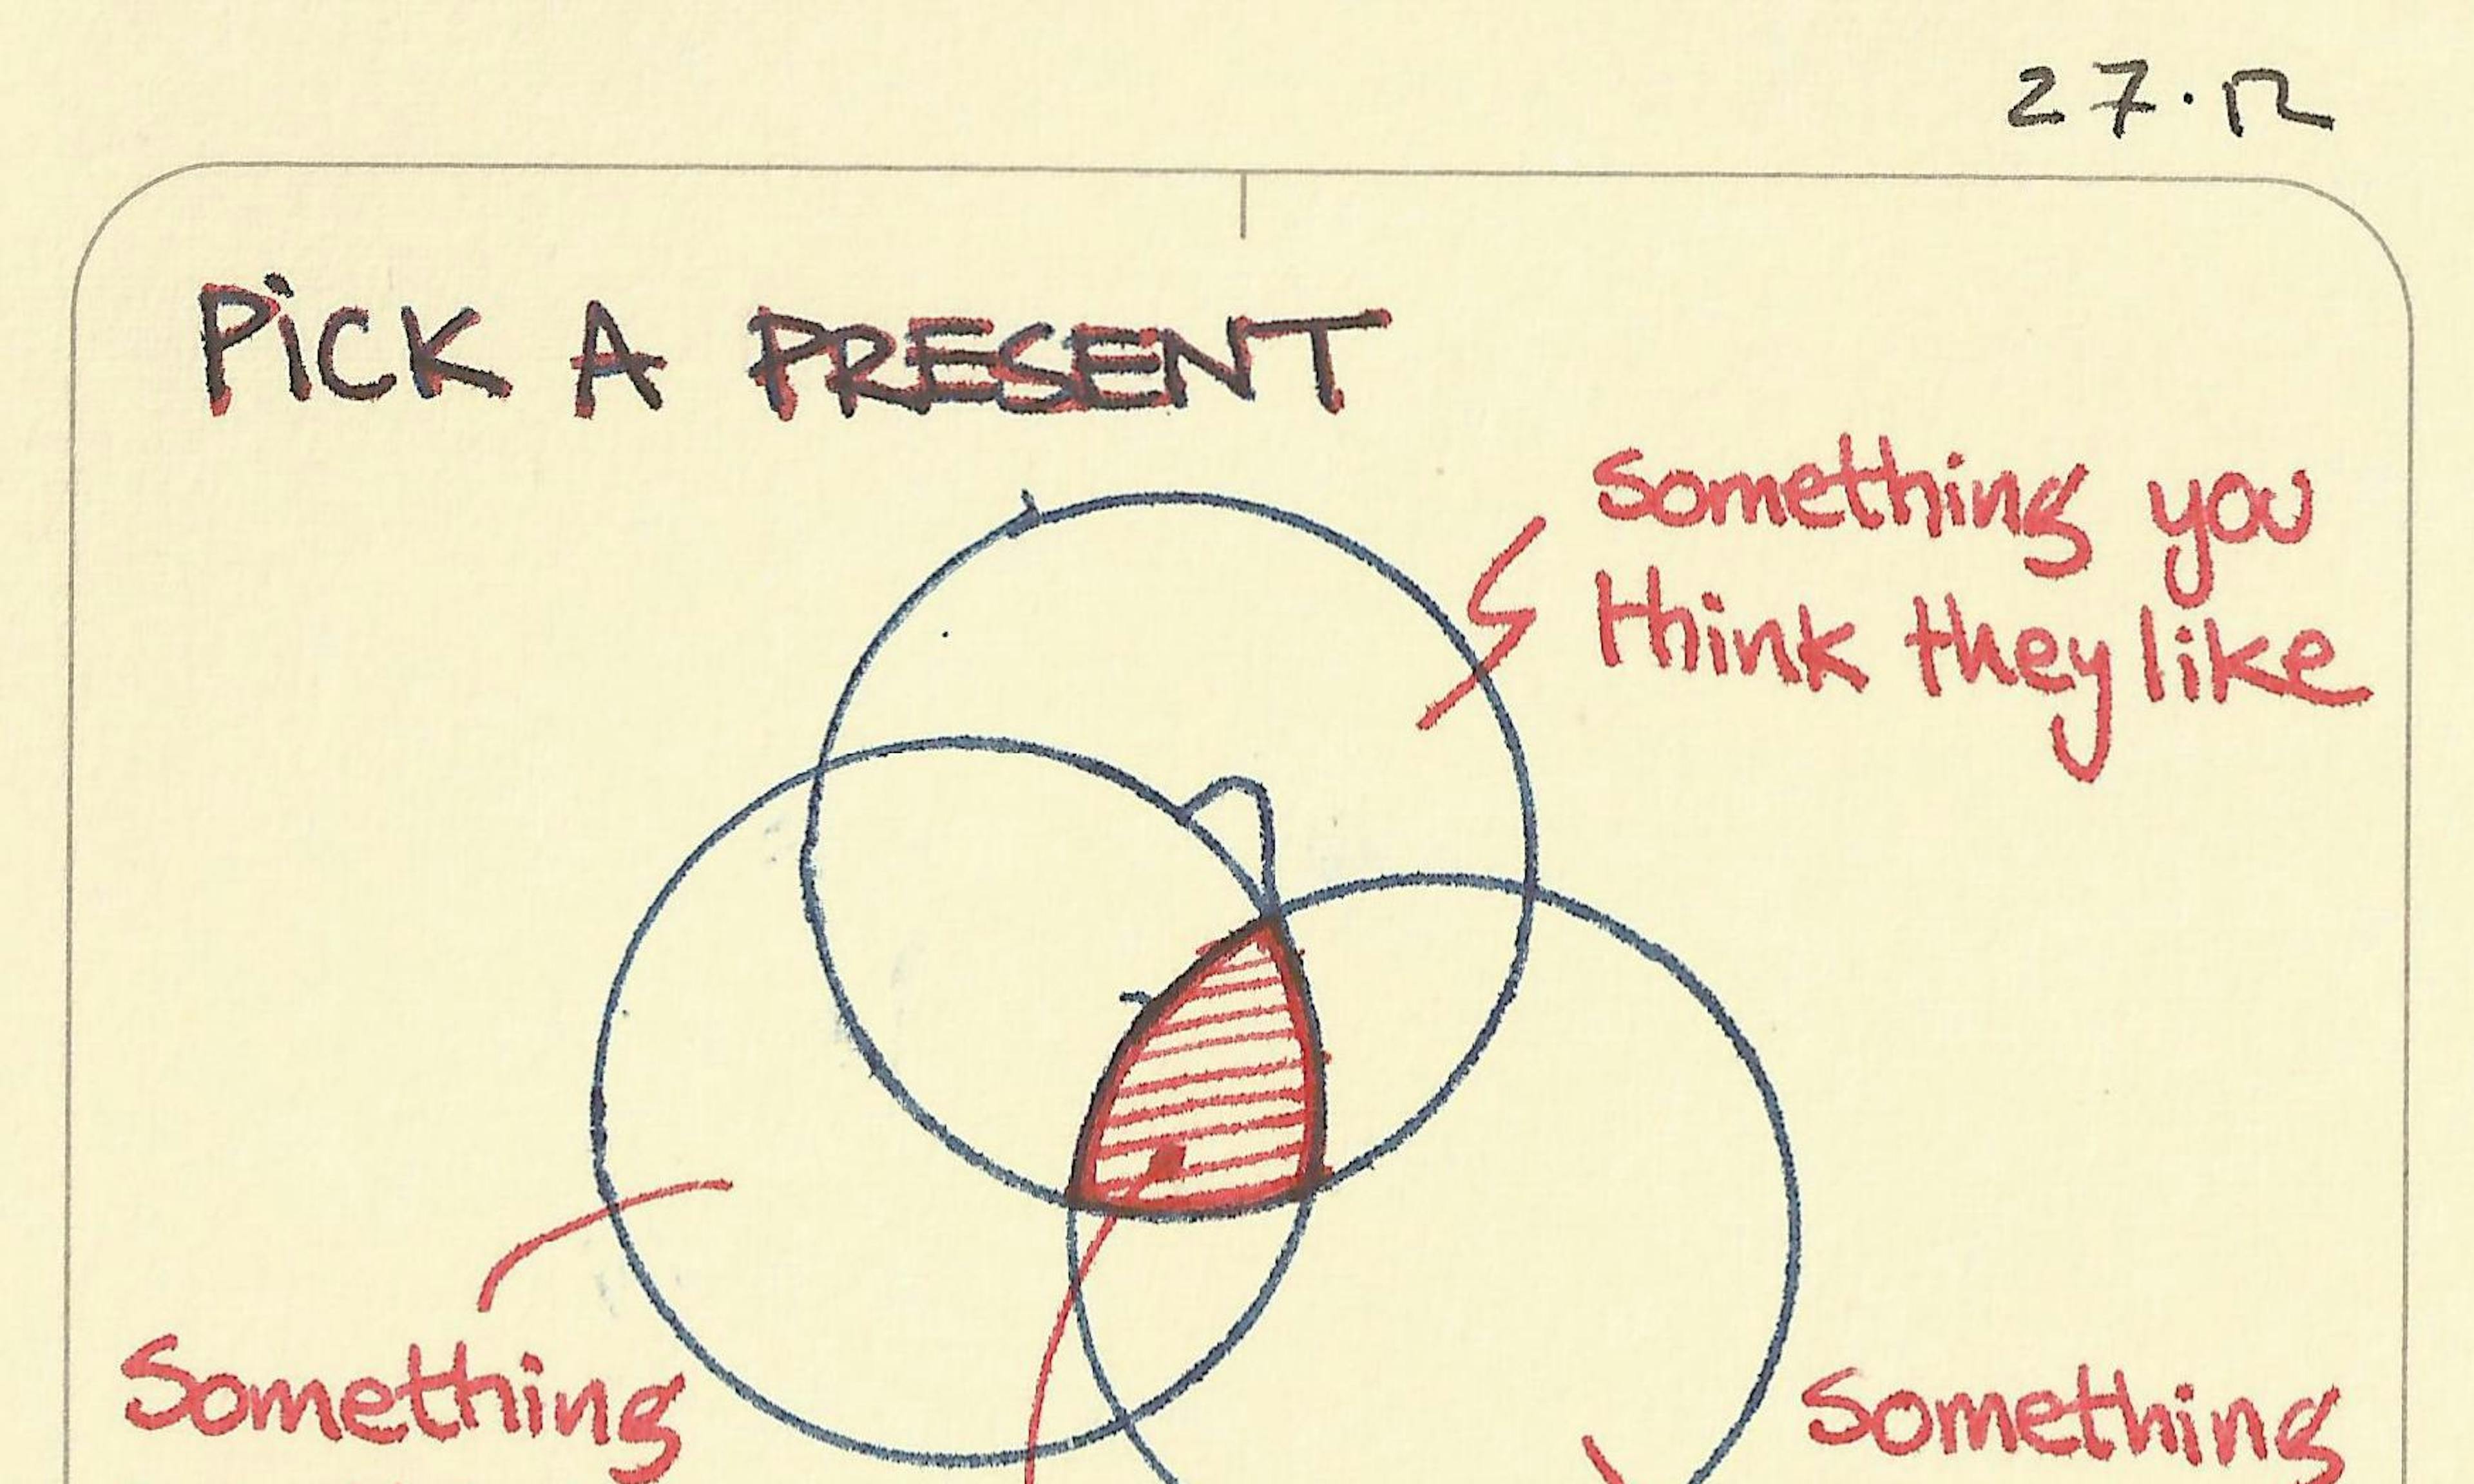 27.12
PiCK A PRESENT
something you
think they like
Something
Something